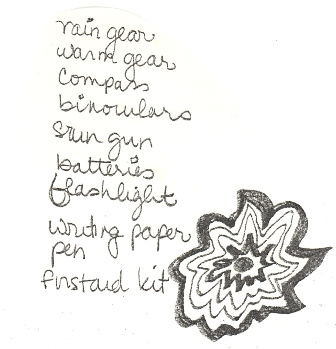 rain gear
warm gear
compass
binoculars
stun gun
batteries
flashlight
writing paper
pen
first aid kit